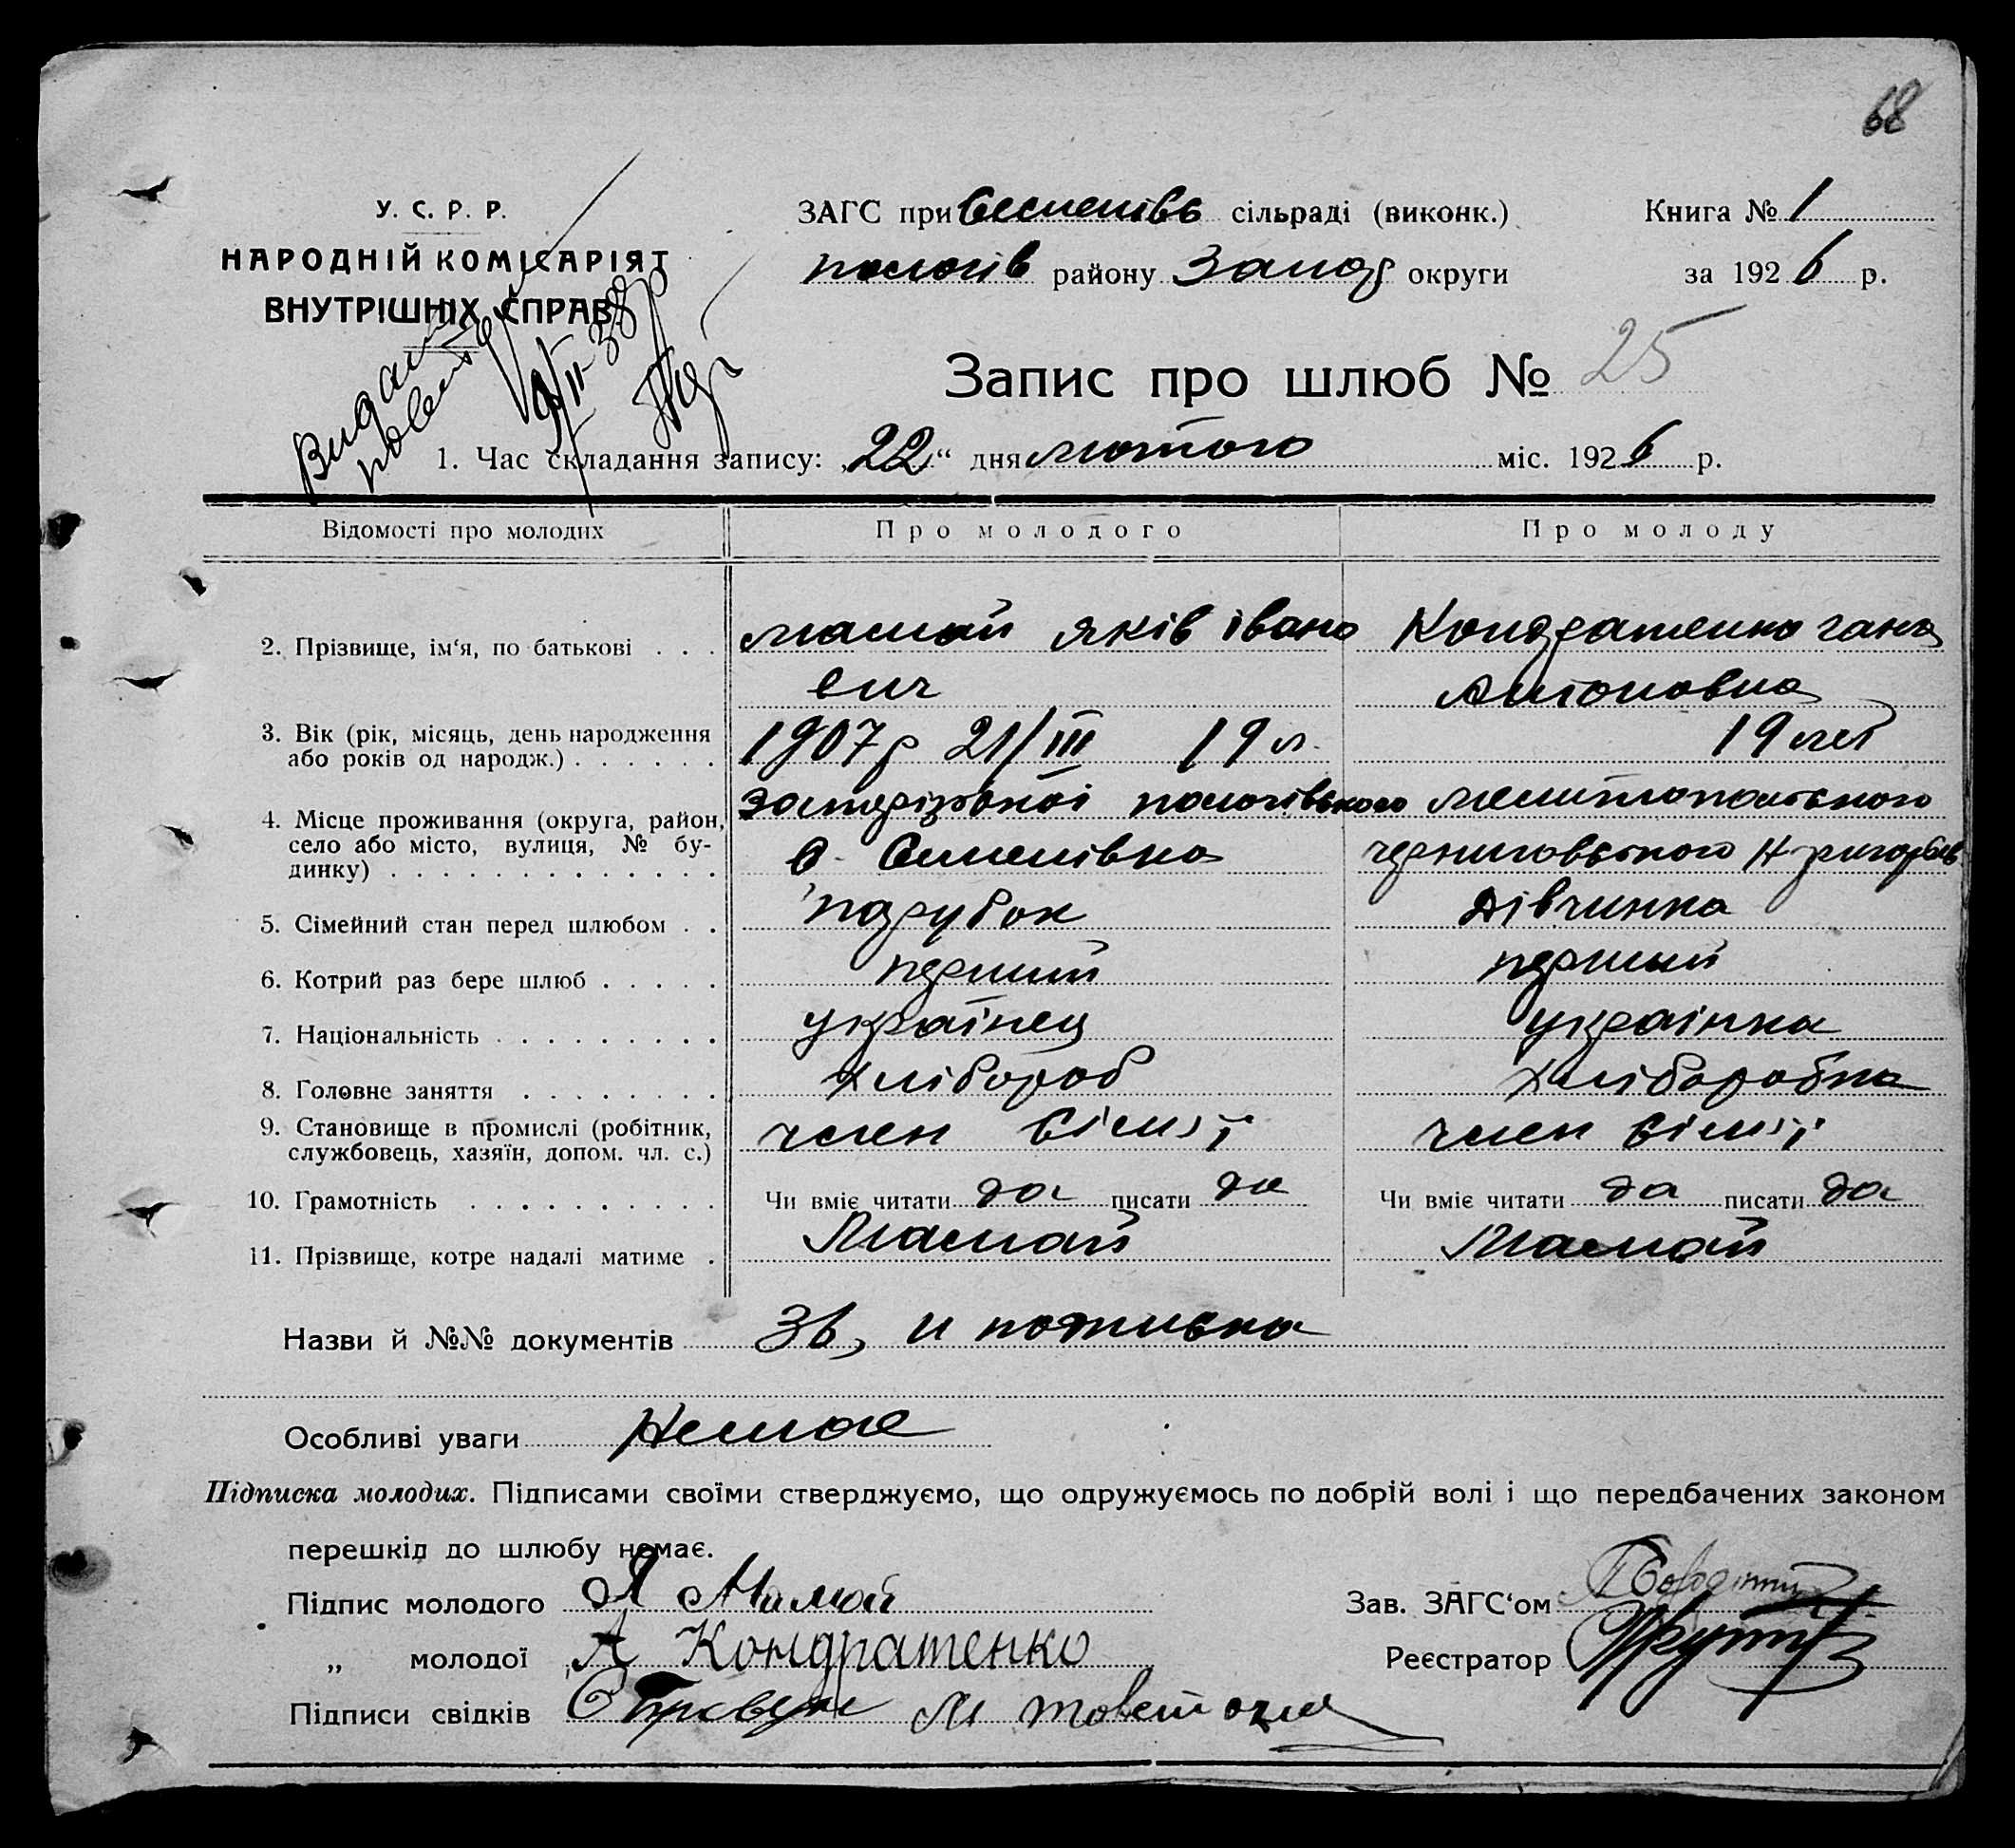 68
У. С. Р. Р.
НАРОДНІЙ КОМІСАРІЯТ
ВНУТРІШНІХ СПРАВ
ЗАГС при Семенівс сільраді (виконк.)
Книга № 1
пологів району Запор округи
за 1926 р.
Видан
9/II-38р
Запис про шлюб № 25
1. Час складання запису: „22“ дня лютого міс. 1926 р.
Відомості про молодих Про молодого Про молоду
2. Прізвище, ім‘я, по батькові . . . мамай яків івано Кондратенко гана
вич Антоновна
3. Вік (рік, місяць, день народження
або років од народж.) . . . . . . 1907р 21/III 19 л. 19 лет
4. Місце проживання (округа, район,
село або місто, вулиця, № бу-
динку) . . . . . . . . . . . . .
запорізькоі пологівського мелитопольского
с. Семенівка черниговського
5. Сімейний стан перед шлюбом . . парубок дівчинка
6. Котрий раз бере шлюб . . . . . перший перший
7. Національність . . . . . . . . . українец українка
8. Головне заняття . . . . . . . . хлібороб хліборобка
9. Становище в промислі (робітник,
службовець, хазяїн, допом. чл. с.) член сімї член сімї
10. Грамотність . . . . . . . . . . Чи вміє читати да писати да Чи вміє читати да писати да
11. Прізвище, котре надалі матиме . Мамай Мамай
Назви й №№ документів 36, и
Особливі уваги Немае
Підписка молодих. Підписами своїми стверджуємо, що одружуємось по добрій волі і що передбачених законом
перешкід до шлюбу немає.
Підпис молодого Я Мамай
Зав. ЗАГС‘ом
„ молодої А Кондратенко
Реєстратор
Підписи свідків М